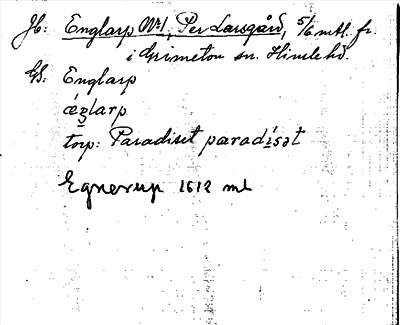 Jb: Englarp Nr 1, Per Larsgård, 5/6 mtl. fr.
i Grimeton sn. Himle hd.
GS: Englarp
æŋlarp
torp: Paradiset paradisət
Egnerup 1612 ml